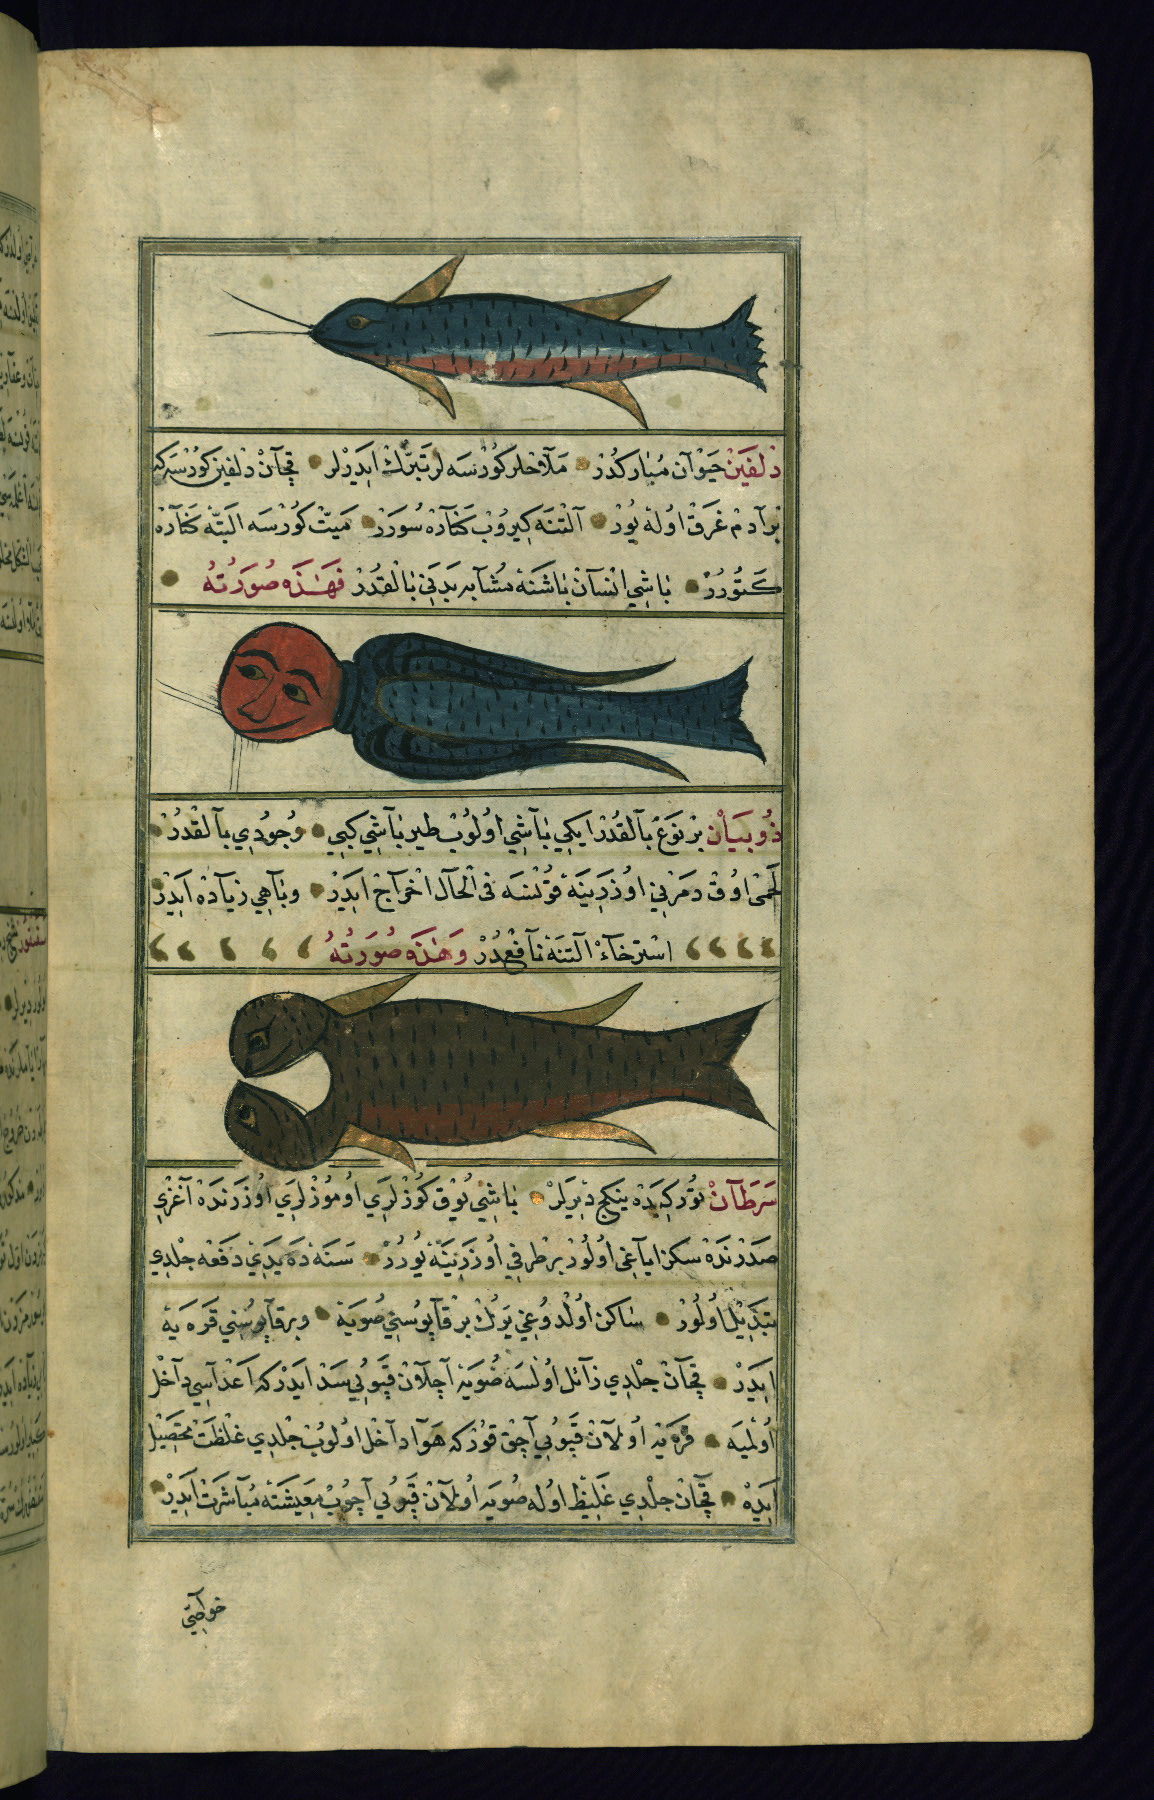 دلفين حيوان مباركدر ملاحلر كورسه لر تبرك ايدرلر قچان دلفين كورسه كه
بر آدم غرق اوله يور آلتنه كيروب كناره سورر ميت كورسه البته كناره
كتورر باشي انسان باشنه مشابه بدني بالقدر فهذه صورته
ذوبيان بر نوع بالقدر ايكي باشي اولوب طير باشي كبي وجودي بالقدر
لحمى اوق دمرني اوزرينه قونسه في الحال اخراج ايدر وباهي زياده ايدر
استرخاء آلتنه نافعدر وهذه صورته
سرطان توركيده ينكج ديرلر باشي يوق كوزلري اوموزلري اوزرنده آغزي
صدرنده سكز اياغي اولور بر طرفي اوزرينه يورر سنه ده يدي دفعه جلدي
تبديل اولور ساكن اولدوغي يرك بر قاپوسني صويه وبر قاپوسني قره يه
ايدر قچان جلدي زائل اولسه صويه آچلان قپويي سد ايدر كه اعداسي داخل
اولميه قره يه اولان قپويي آچق قور كه هوا داخل اولوب جلدي غلظت تحصيل
ايده قچان جلدي غليظ اوله صويه اولان قپويي آچوب معيشته مباشرت ايدر